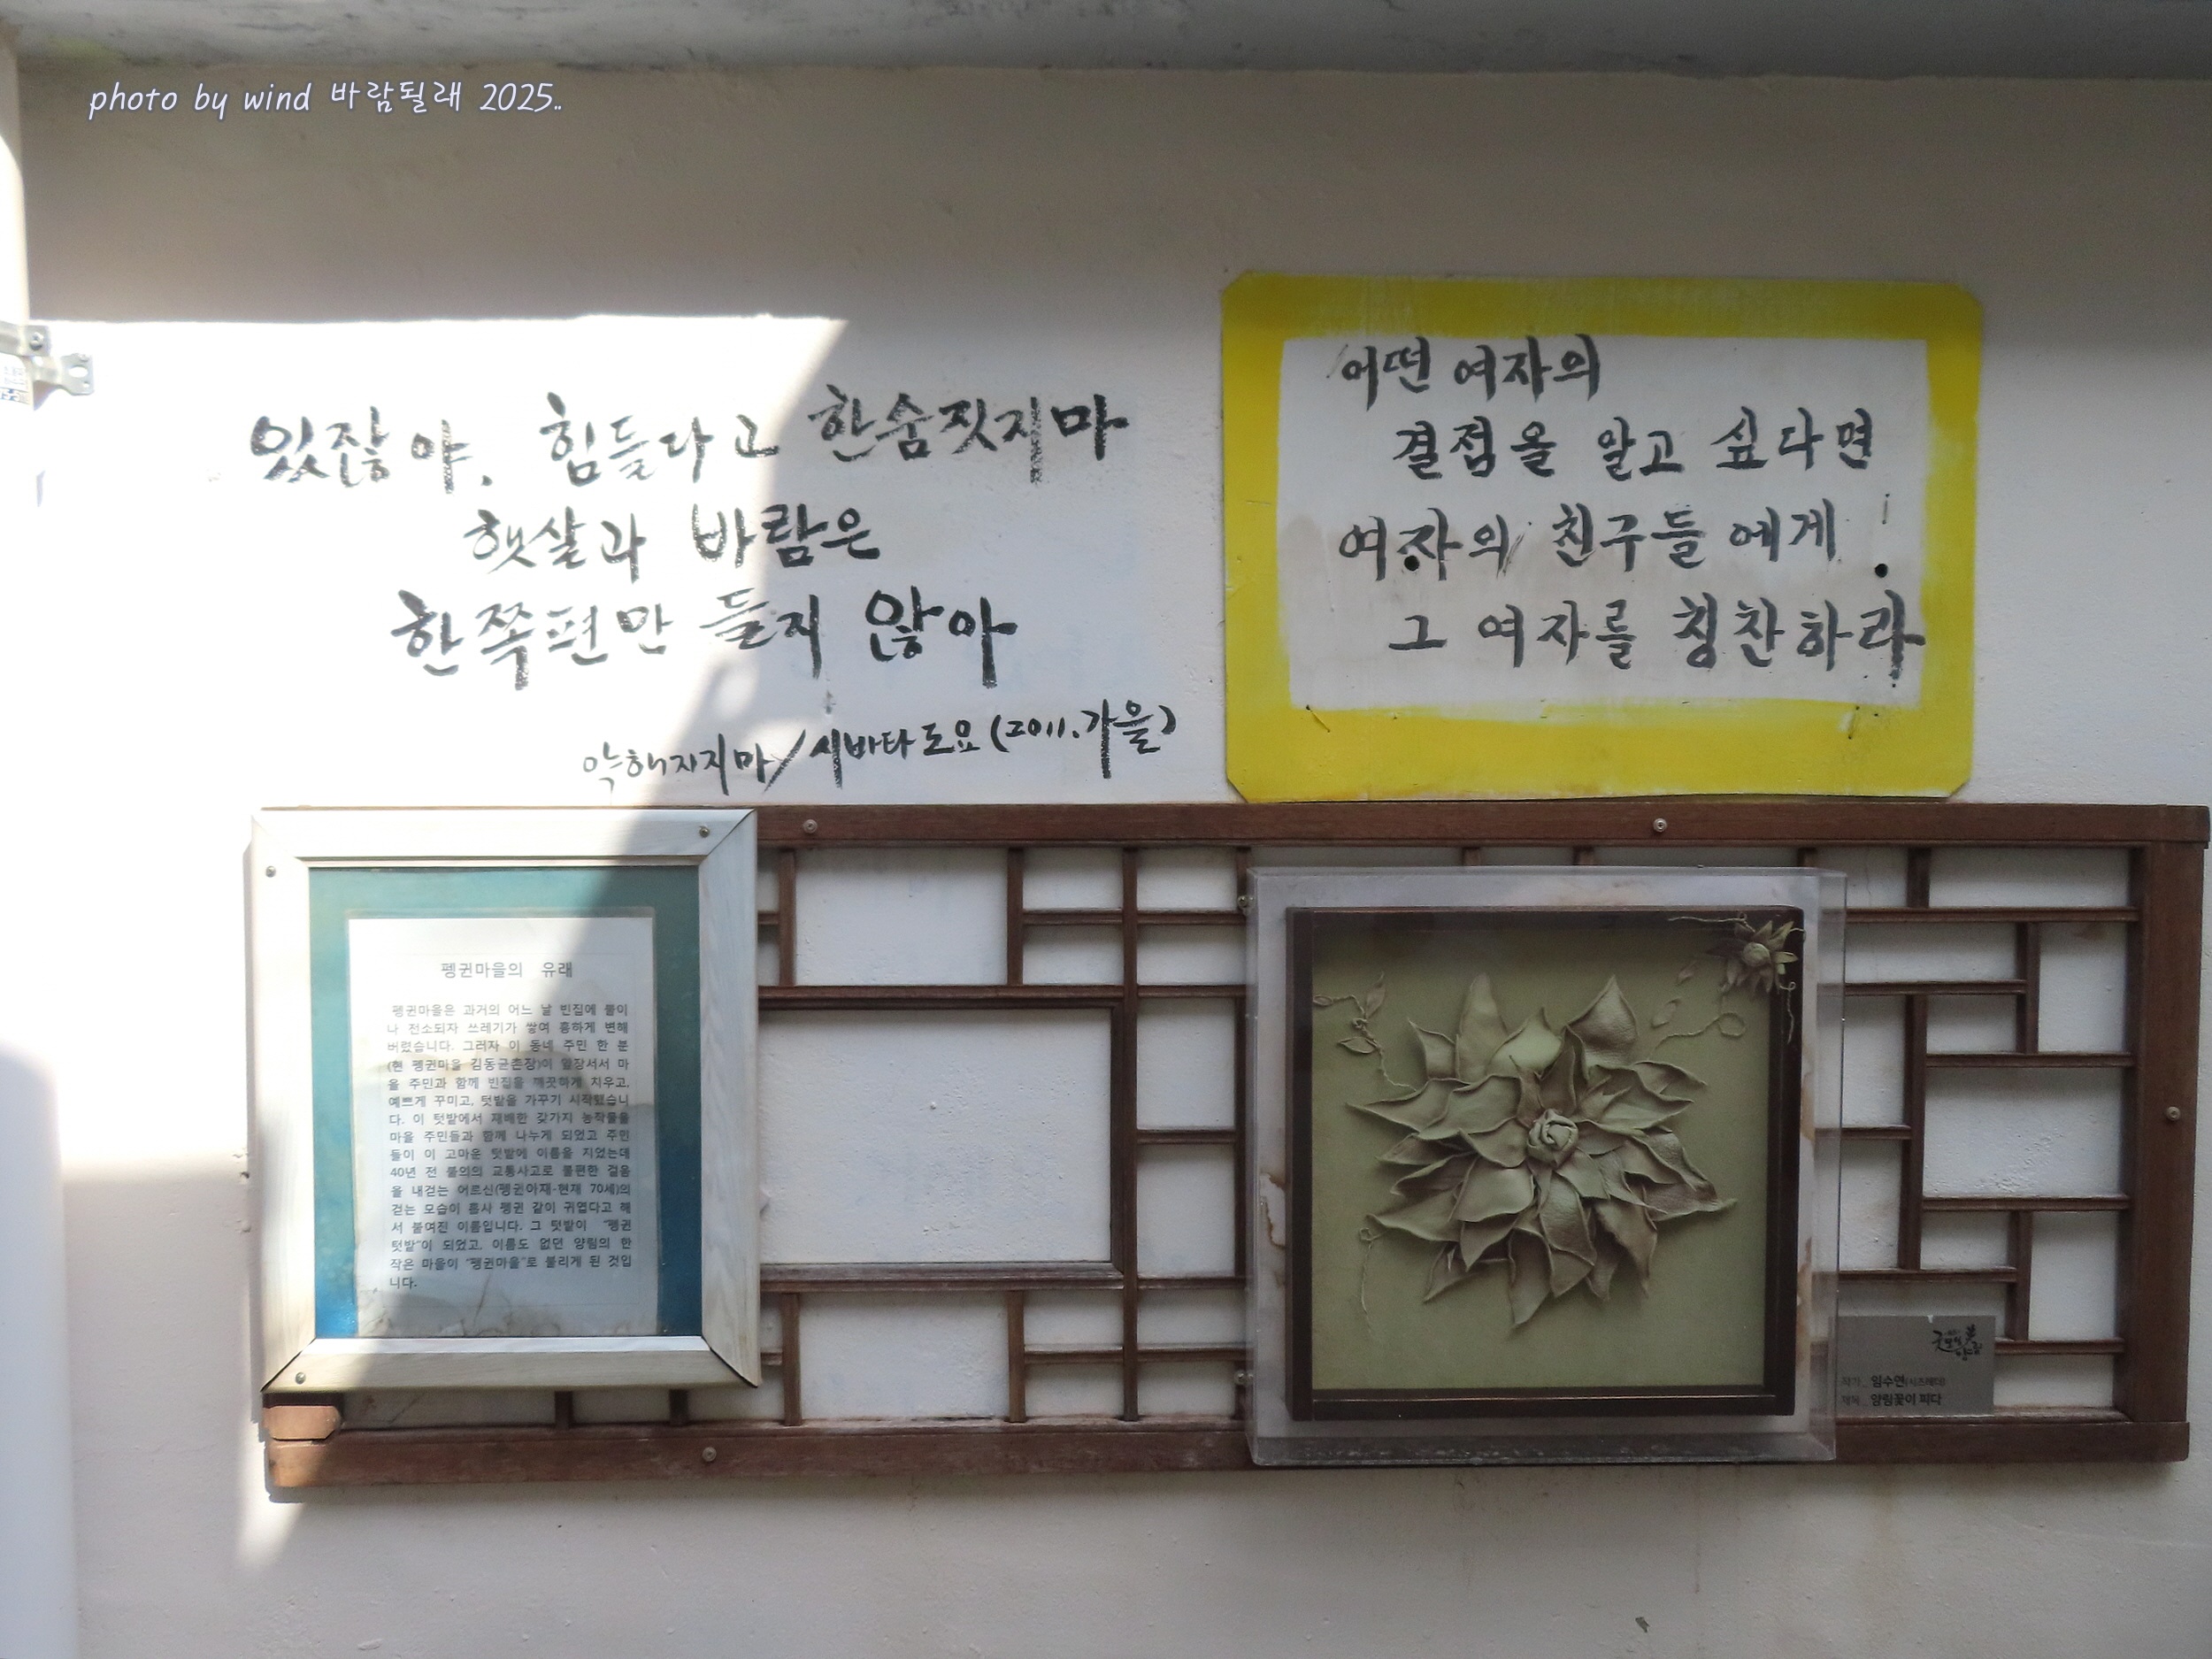 photo by wind 바람될래 2025..
있잖아, 힘들다고 한숨짓지마
햇살과 바람은
한쪽편만 들지 않아
약해지지마/시바타 도요(2011.가을)
어떤 여자의
결점을 알고 싶다면
여자의 친구들에게
그 여자를 칭찬하라
펭귄마을의 유래
펭귄마을은 과거의 어느 날 빈집에 불이
나 전소되자 쓰레기가 쌓여 흉하게 변해
버렸습니다. 그러자 이 동네 주민 한 분
(현 펭귄마을 김동균촌장)이 앞장서서 마
을 주민과 함께 빈집을 깨끗하게 치우고,
예쁘게 꾸미고, 텃밭을 가꾸기 시작했습니
다. 이 텃밭에서 재배한 갖가지 농작물을
마을 주민들과 함께 나누게 되었고 주민
들이 이 고마운 텃밭에 이름을 지었는데
40년 전 불의의 교통사고로 불편한 걸음
을 내걷는 어르신(펭귄아재-현재 70세)의
걷는 모습이 흡사 펭귄 같이 귀엽다고 해
서 붙여진 이름입니다. 그 텃밭이 "펭귄
텃밭"이 되었고, 이름도 없던 양림의 한
작은 마을이 "펭귄마을"로 불리게 된 것입
니다.
작가_ 임수연
제목_ 양림꽃이 피다